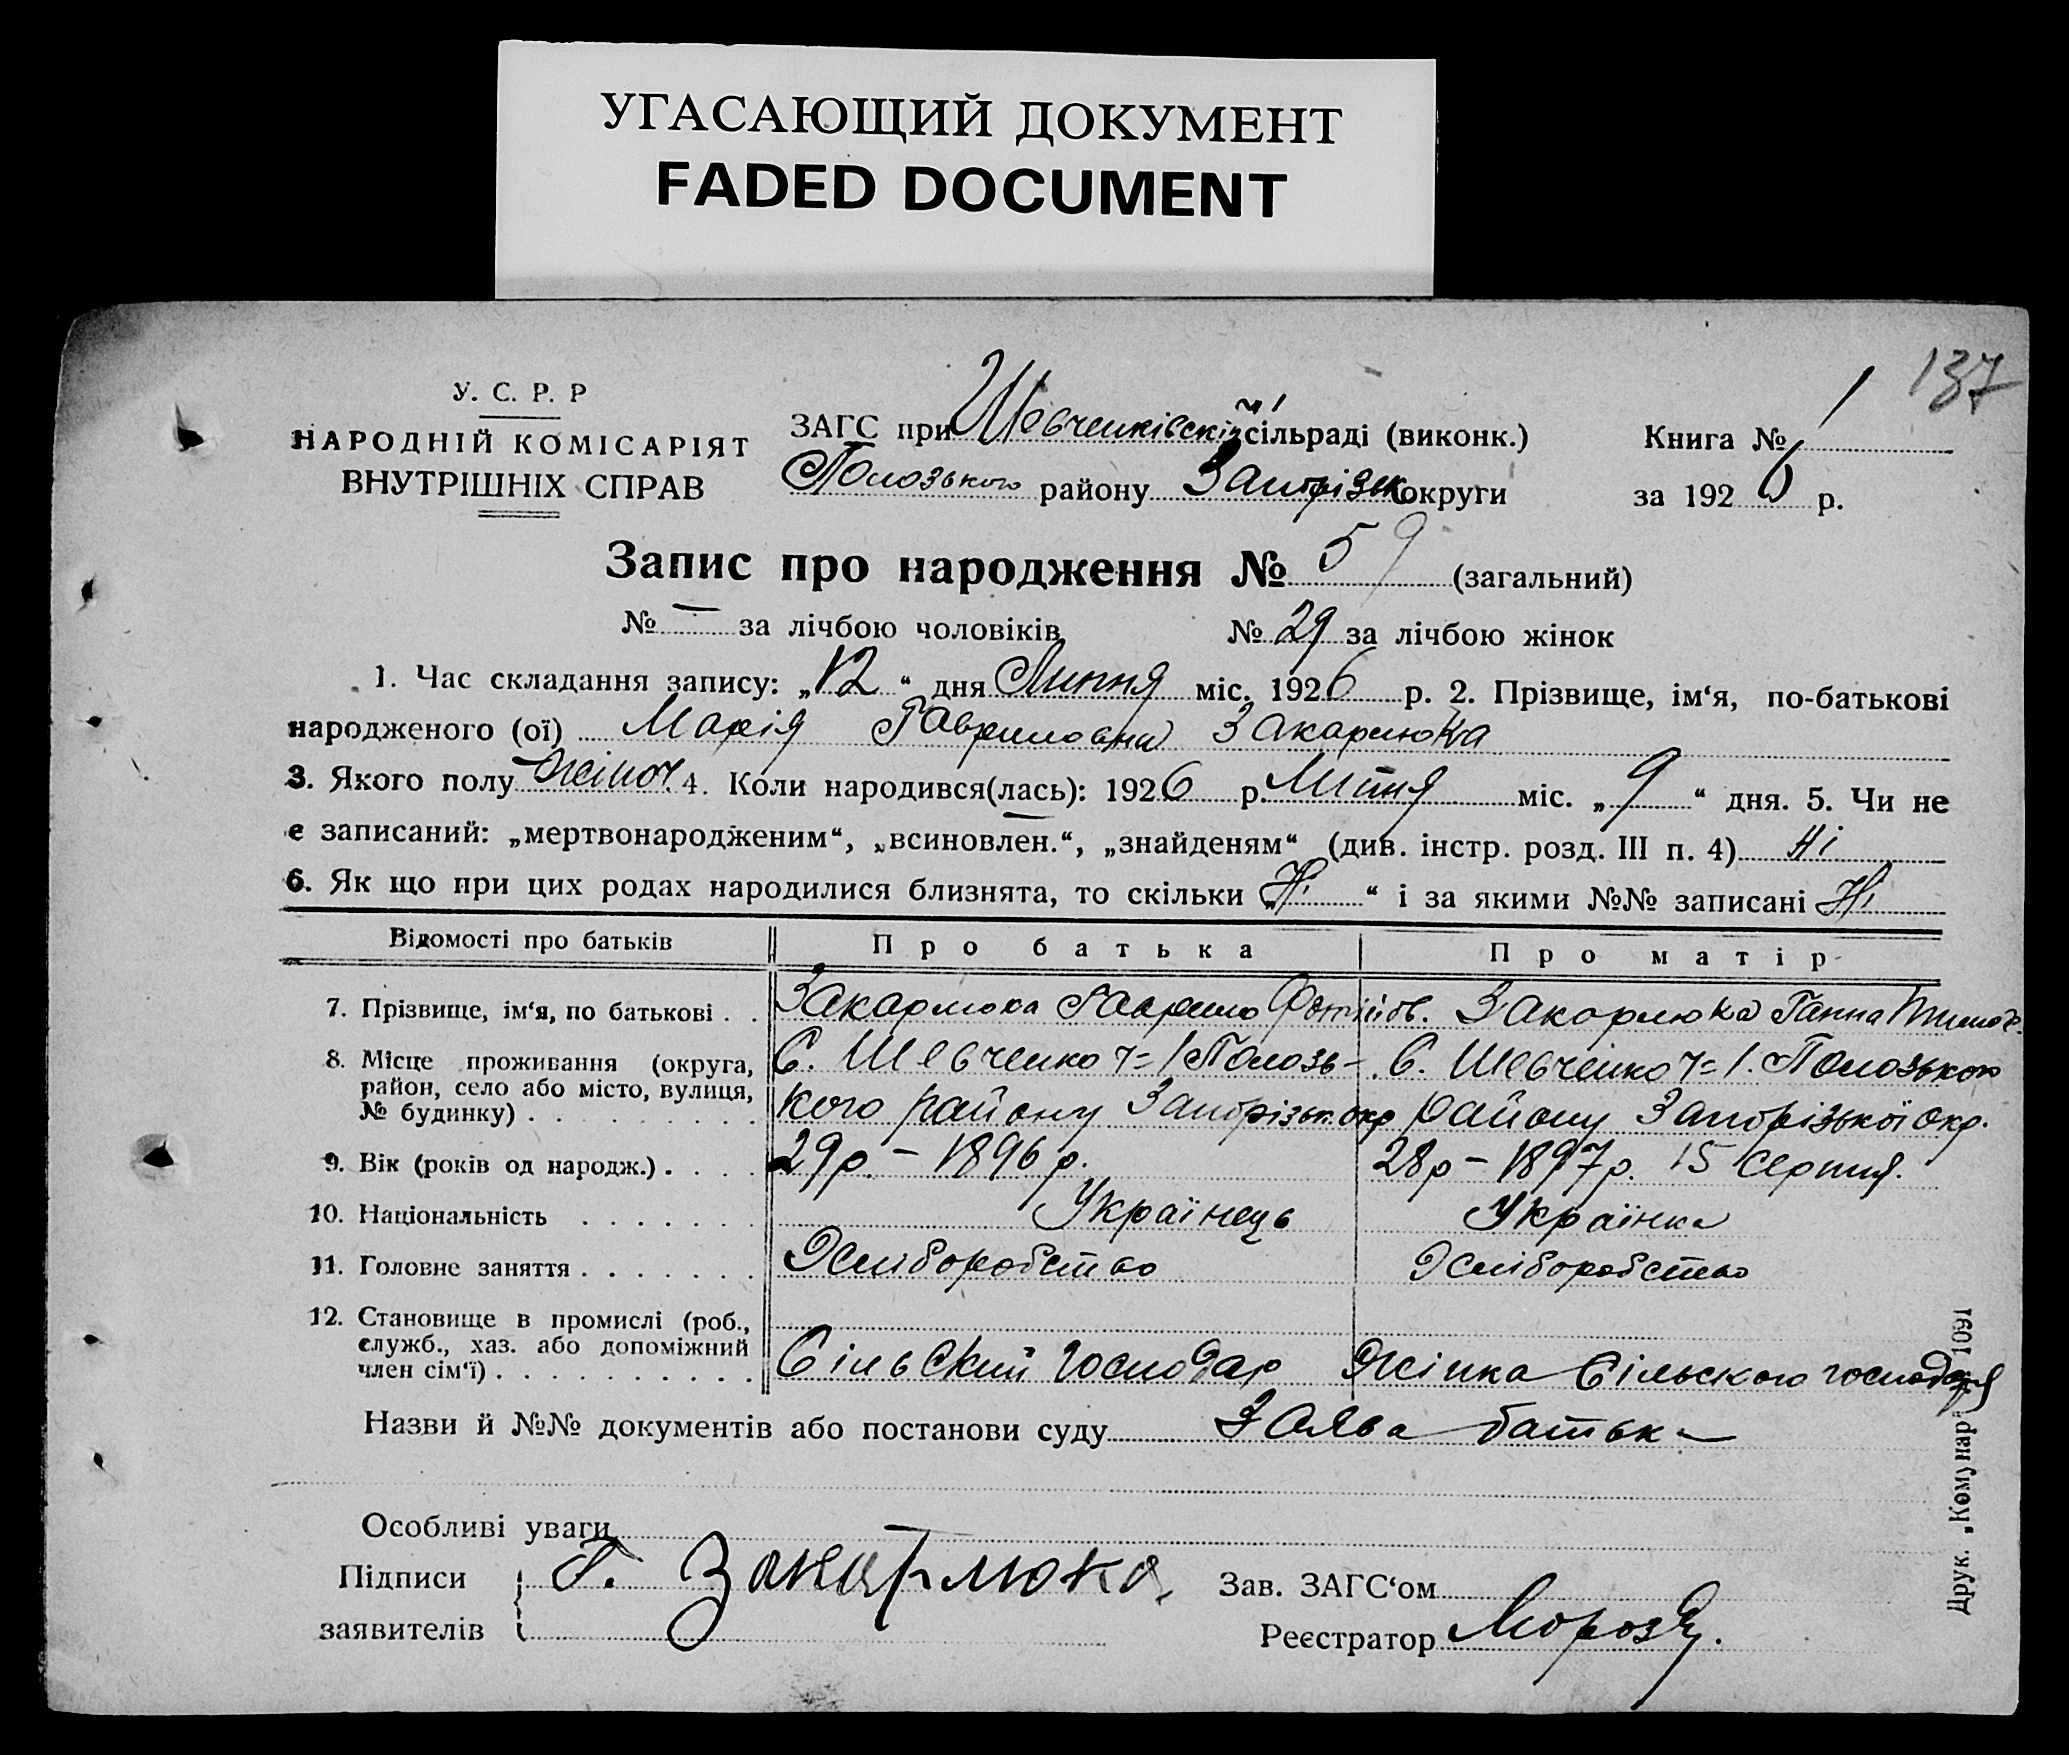 УГАСАЮЩИЙ ДОКУМЕНТ
FADED DOCUMENT
137
У. С. Р. Р
НАРОДНІЙ КОМІСАРІЯТ
ВНУТРІШНІХ СПРАВ
ЗАГС при Шевченківській №1 сільраді (виконк.)
Полозького району Запорізьк округи
Книга № 1
за 1926 р.
Запис про народження № 59 (загальний)
№ — за лічбою чоловіків № 29 за лічбою жінок
1. Час складання запису: „12“ дня Липня міс. 1926 р. 2. Прізвище, ім‘я, по-батькові
народженого (ої) Марія Гавриловна Закарлюка
3. Якого полу жіноч. 4. Коли народився(лась): 1926 р. Липня міс. „9“ дня. 5. Чи не
є записаний: „мертвонародженим“, „всиновлен.“, „знайденям“ (див. інстр. розд. III п. 4) Ні
6. Як що при цих родах народилися близнята, то скільки „Ні“ і за якими №№ записані Ні
Відомості про батьків Про батька Про матір
7. Прізвище, ім‘я, по батькові . . Закарлюка Гаврило Закорлюка Ганна
8. Місце проживання (округа, район, село або місто, вулиця, № будинку) . С. Шевченко ч=1 Полозь-
кого району Запорізьк. окр С. Шевченко ч=1. Полозького
району Запорізької окр.
9. Вік (років од народж.) . . . . 29р. – 1896 р. 28р – 1897р. 15 Серпня.
10. Національність . . . . . . . Українець Українка
11. Головне заняття . . . . . . . Хліборобство Хліборобство
12. Становище в промислі (роб.,
служб., хаз. або допоміжний
член сім‘ї) . . . . . . . . . . Сільський господар Жінка Сільського господаря
Назви й №№ документів або постанови суду Заява батька
Особливі уваги
Підписи
заявителів Г. Закарлюка
Зав. ЗАГС‘ом
Реєстратор Мороз
Друк. „Комунар“ 1091